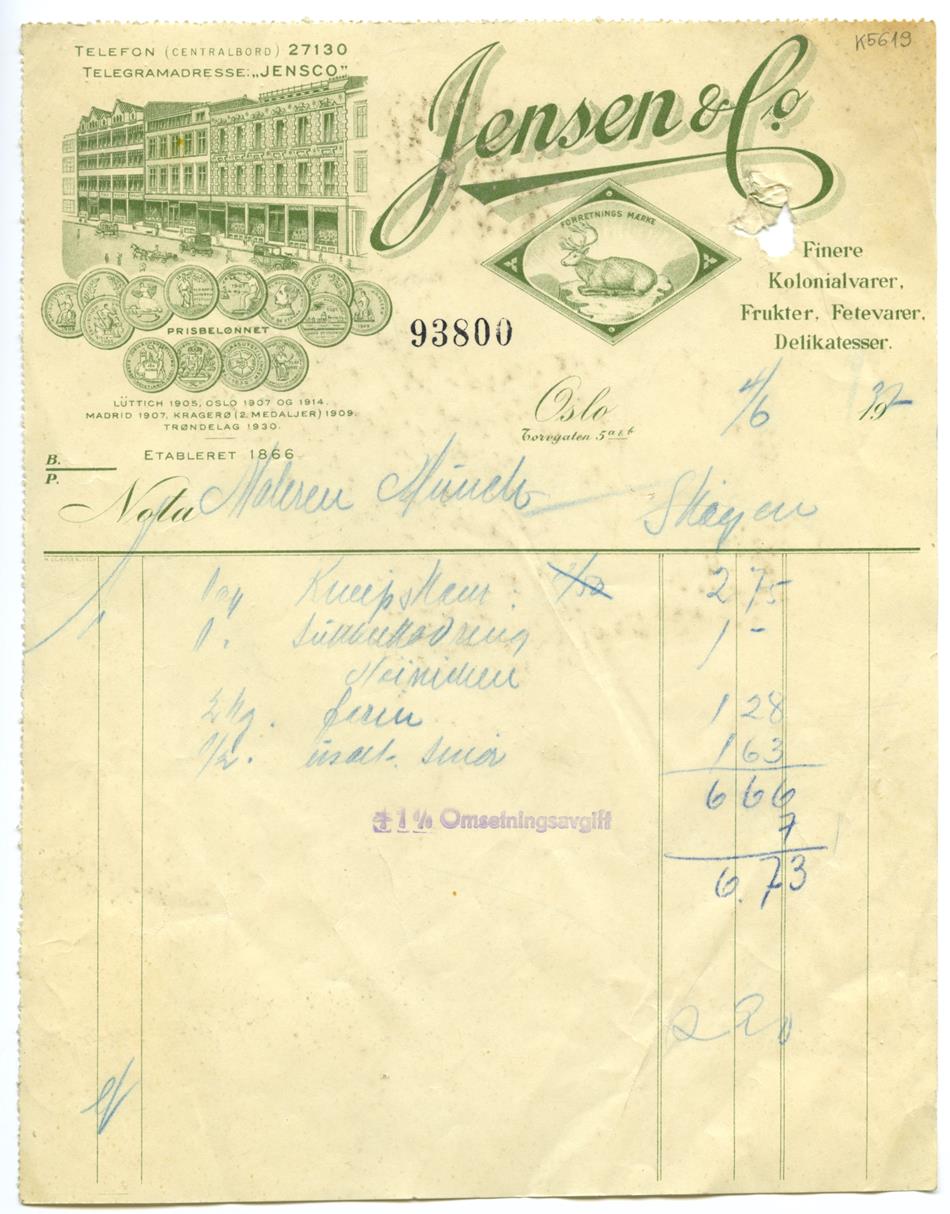 K5619
TELEFON (CENTRALBORD) 27130
TELEGRAMADRESSE: „JENSCO"
Jensen & Co
FORRETNINGS MÆRKE
Finere
Kolonialvarer,
Frukter, Fetevarer,
Delikatesser.
PRISBELØNNET
93800
LÜTTICH 1905, OSLO 1907 OG 1914.
MADRID 1907, KRAGERØ (2 MEDALJER) 1909.
TRØNDELAG 1930.
Oslo 4/6 19
Torvgaten 5 a & b
ETABLERET 1866
B.
P.
Nota Maleren Munch Skøyen
275
1 -
128
1/2 usalt. smør 163
666
± 1 % Omsetningsavgift
7
6.73